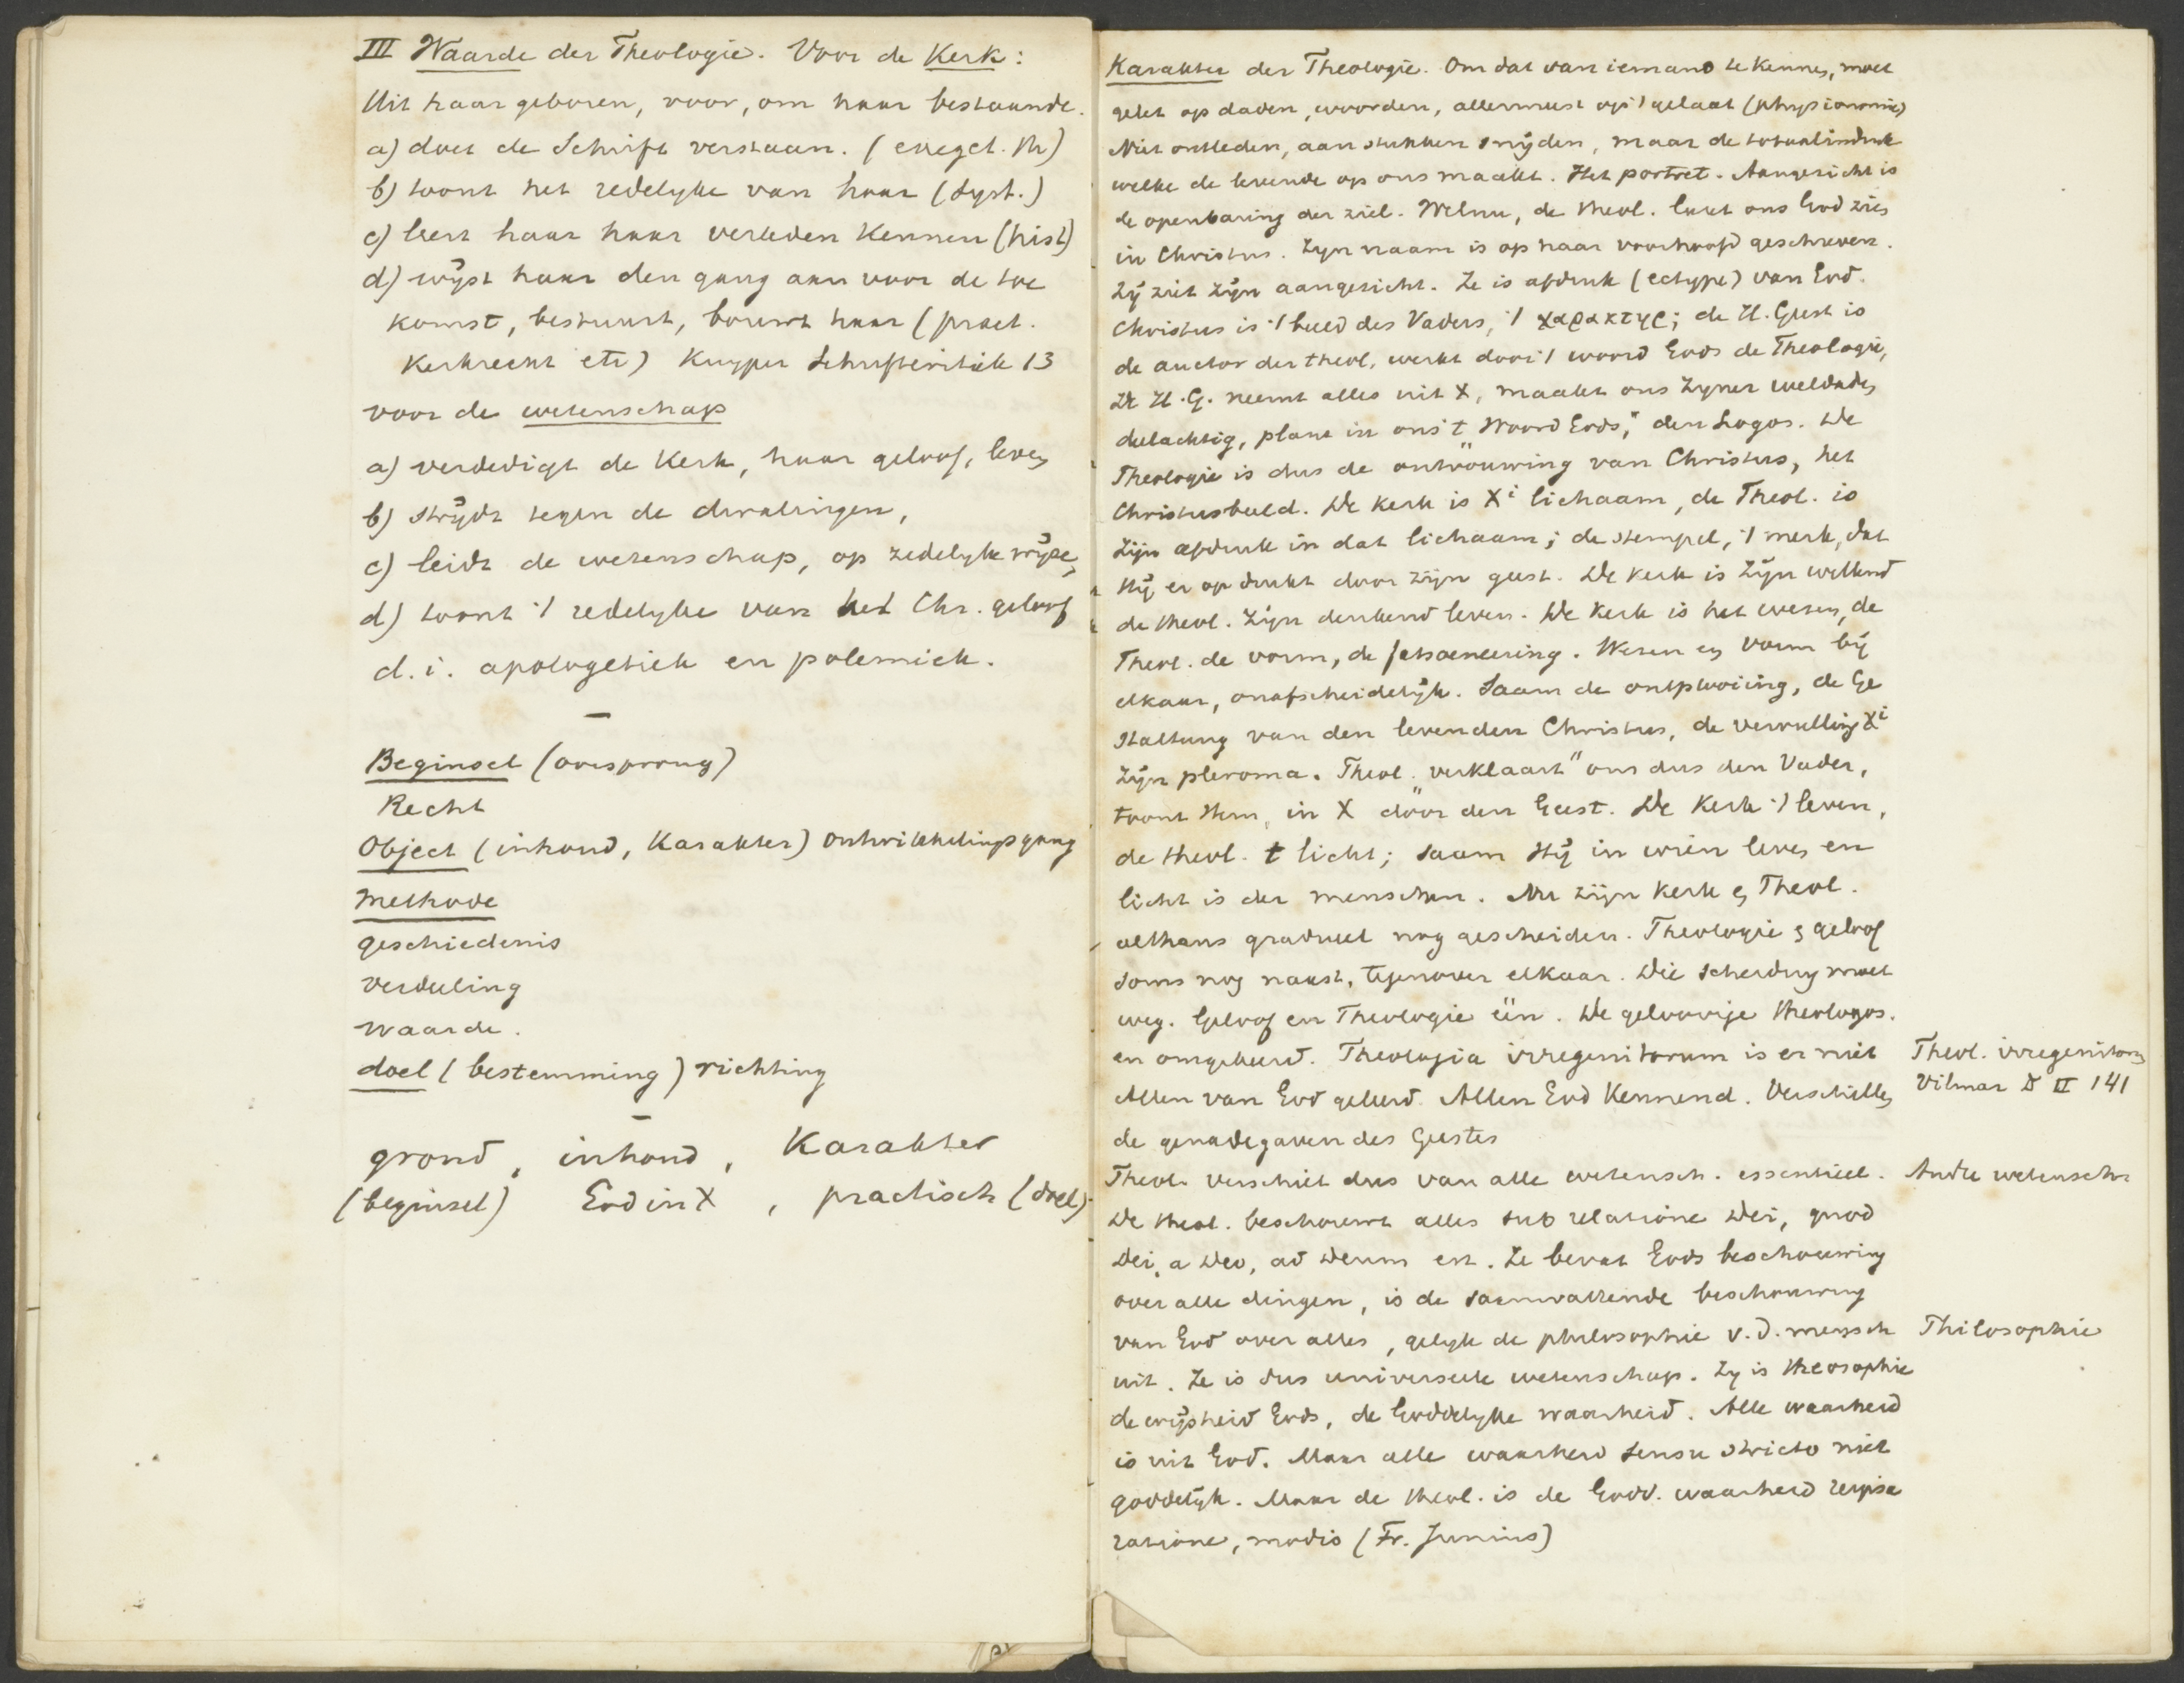 III Waarde der Theologie. Voor de Kerk:
Uit haar geboren, voor, om haar bestaande.
a) doet de Schrift verstaan. (exeget. Th)
b) toont het redelyke van haar (Syst.)
c) leert haar haar verleden kennen (hist)
d) wijst haar den gang aan voor de toe
komst, bestuurt, bouwt haar (pract.
Kerkrecht etc) Kuyper Schriftcritiek 13
voor de wetenschap
a) verdedigt de Kerk, haar geloof, leven
b) strijdt tegen de dwalingen,
c) leidt de wetenschap, op zedelyke wijze,
d) toont 't redelyke van het Chr. geloof
d.i. apologetiek en polemiek.
—
Beginsel (oorsprong)
Recht
Object (inhoud, Karakter) ontwikkelingsgang
Methode
geschiedenis
verdeeling
waarde.
doel (bestemming) richting
—
grond, inhoud, Karakter
(beginsel) God in X, practisch (doel).
Karakter der Theologie. Om dat van iemand te kennen, moet
gelet op daden, woorden, allermeest op 't gelaat (physionomie)
Niet ontleden, aan stukken snijden, maar de totaalindruk
welke de levende op ons maakt. Het portret. Aangezicht is
de openbaring der ziel. Welnu, de theol. laat ons God zien
in Christus. Zyn naam is op haar voorhoofd geschreven.
Zij ziet Zijn aangezicht. Ze is afdruk (ectype) van God.
Christus is 't beeld des Vaders, 't χαρακτηρ; de H. Geest is
de auctor der theol. werkt door 't woord Gods de Theologie,
De H.G. neemt alles uit X, maakt ons Zyner weldaden
deelachtig, plant in ons 't Woord Gods," den Logos. De
Theologie is dus de ontvouwing van Christus, het
Christusbeeld. De Kerk is Xi lichaam, de Theol. is
Zijn afdruk in dat lichaam; de stempel, 't merk, dat
Hij er op drukt door zijn geest. De Kerk is Zijn willend
de theol. Zijn denkend leven. De Kerk is het wezen, de
Theol. de vorm, de fatsoeneering. Wezen en vorm bij
elkaar, onafscheidelijk. Saam de ontplooiing, de Ge
staltung van den levenden Christus, de vervulling Xi
Zijn pleroma. Theol. verklaart" ons dus den Vader,
toont Hem, in X door den Geest. De Kerk 't leven,
de theol. t licht; saam Hij in wien leven en
licht is der menschen. Nu zijn Kerk en Theol.
althans gradueel nog gescheiden. Theologie en geloof
soms nog naast, tegenover elkaar. Die scheiding moet
weg. Geloof en Theologie één. De geloovige theologos.
en omgekeerd. Theologia irregenitorum is er niet
Allen van God geleerd. Allen God kennend. Verschillen
de genadegaven des Geestes
Theol. verschilt dus van alle wetensch. essentieel.
De theol. beschouwt alles sub relatione Dei, quod
Dei, a Deo, ad Deum est. Ze bevat Gods beschouwing
over alle dingen, is de saamvattende beschouwing
van God over alles, gelyk de philosophie v.d. mensch
uit. Ze is dus universeele wetenschap. Zy is theosophie
de wijsheid Gods, de Goddelyke waarheid. Alle waarheid
is uit God. Maar alle waarheid sensu stricto niet
goddelijk. Maar de theol. is de Godd. waarheid reipsa
ratione, modis (Fr. Junius)
Theol. irregenitorum
Vilmar D II 141
Andre wetensch.
Philosophie